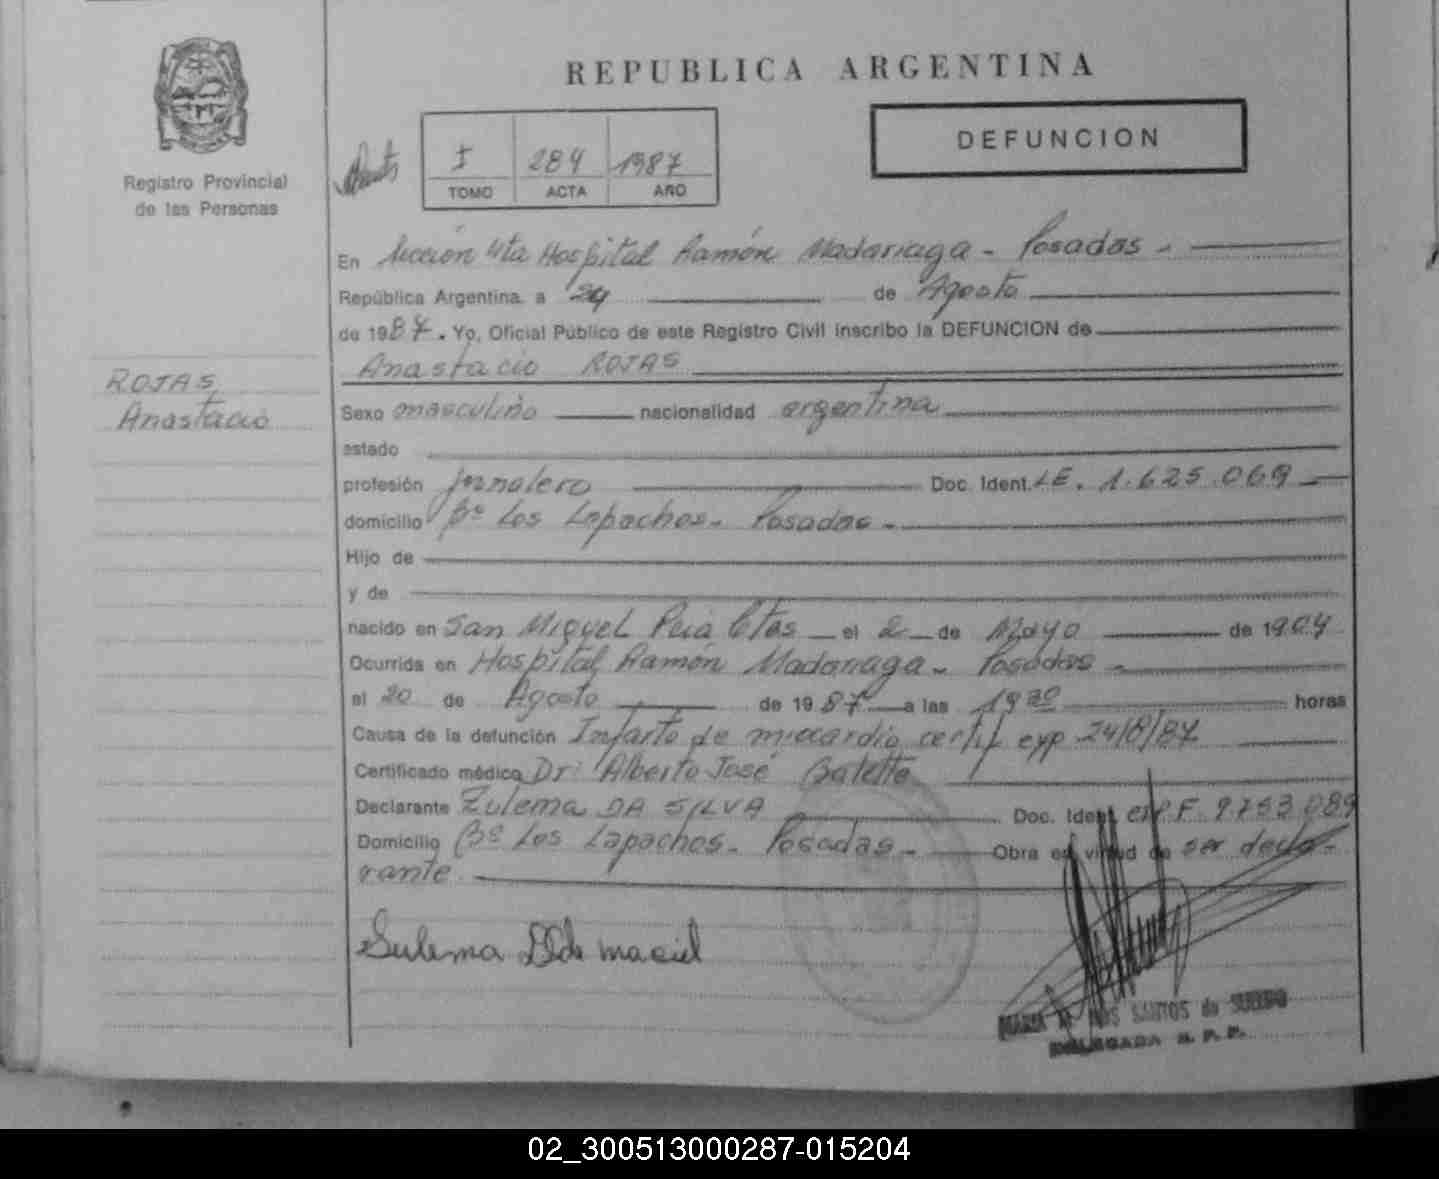 REPUBLICA ARGENTINA
DEFUNCION
Registro Provincial
de las Personas
I 284 1987
TOMO ACTA AÑO
En Sección 4ta Hospital Ramón Madariaga - Posadas -
República Argentina, a 24 de Agosto
de 1987. Yo, Oficial Público de este Registro Civil inscribo la DEFUNCION de
Anastacio ROJAS
ROJAS
Anastacio
Sexo masculino nacionalidad argentina
estado
profesión jornalero Doc. Ident. LE. 1.625.069
domicilio Bº Los Lapachos - Posadas -
Hijo de
y de
nacido en San Miguel Pcia Ctes el 2 de Mayo de 1904
Ocurrida en Hospital Ramón Madariaga - Posadas -
el 20 de Agosto de 1987 a las 19 30 horas
Causa de la defunción Infarto de miocardio certif exp 24/8/87
Certificado médico Dr: Alberto José
Declarante Zulema DA SILVA Doc. Ident. F. 9.753.089
Domicilio Bº Los Lapachos - Posadas - Obra en virtud de ser decla-
rante
Sulema maciel
MARIA SANTOS de
DELEGADA R. P. P.
02_300513000287-015204